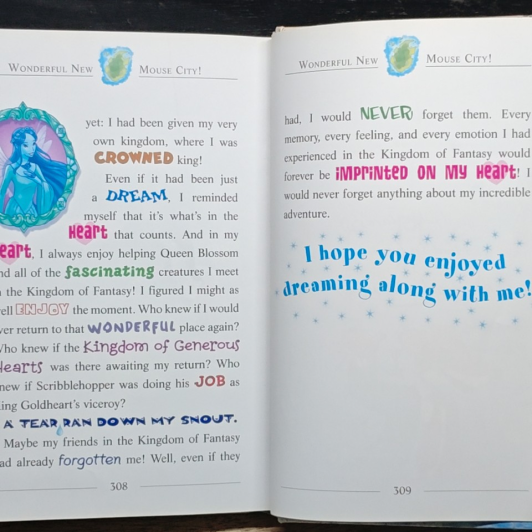 Wonderful New Mouse City!
yet: I had been given my very
own kingdom, where I was
CROWNED king!
Even if it had been just
a DREAM, I reminded
myself that it's what's in the
Heart that counts. And in my
eart, I always enjoy helping Queen Blossom
nd all of the fascinating creatures I meet
the Kingdom of Fantasy! I figured I might as
ell ENJOY the moment. Who knew if I would
ver return to that WONDERFUL place again?
Who knew if the Kingdom of Generous
Hearts was there awaiting my return? Who
new if Scribblehopper was doing his JOB as
ing Goldheart's viceroy?
A TEAR RAN DOWN MY SNOUT.
Maybe my friends in the Kingdom of Fantasy
ad already forgotten me! Well, even if they
308
Wonderful New Mouse City!
had, I would NEVER forget them. Every
memory, every feeling, and every emotion I had
experienced in the Kingdom of Fantasy would
forever be imprinted on my heart! I
would never forget anything about my incredible
adventure.
I hope you enjoyed
dreaming along with me!
309